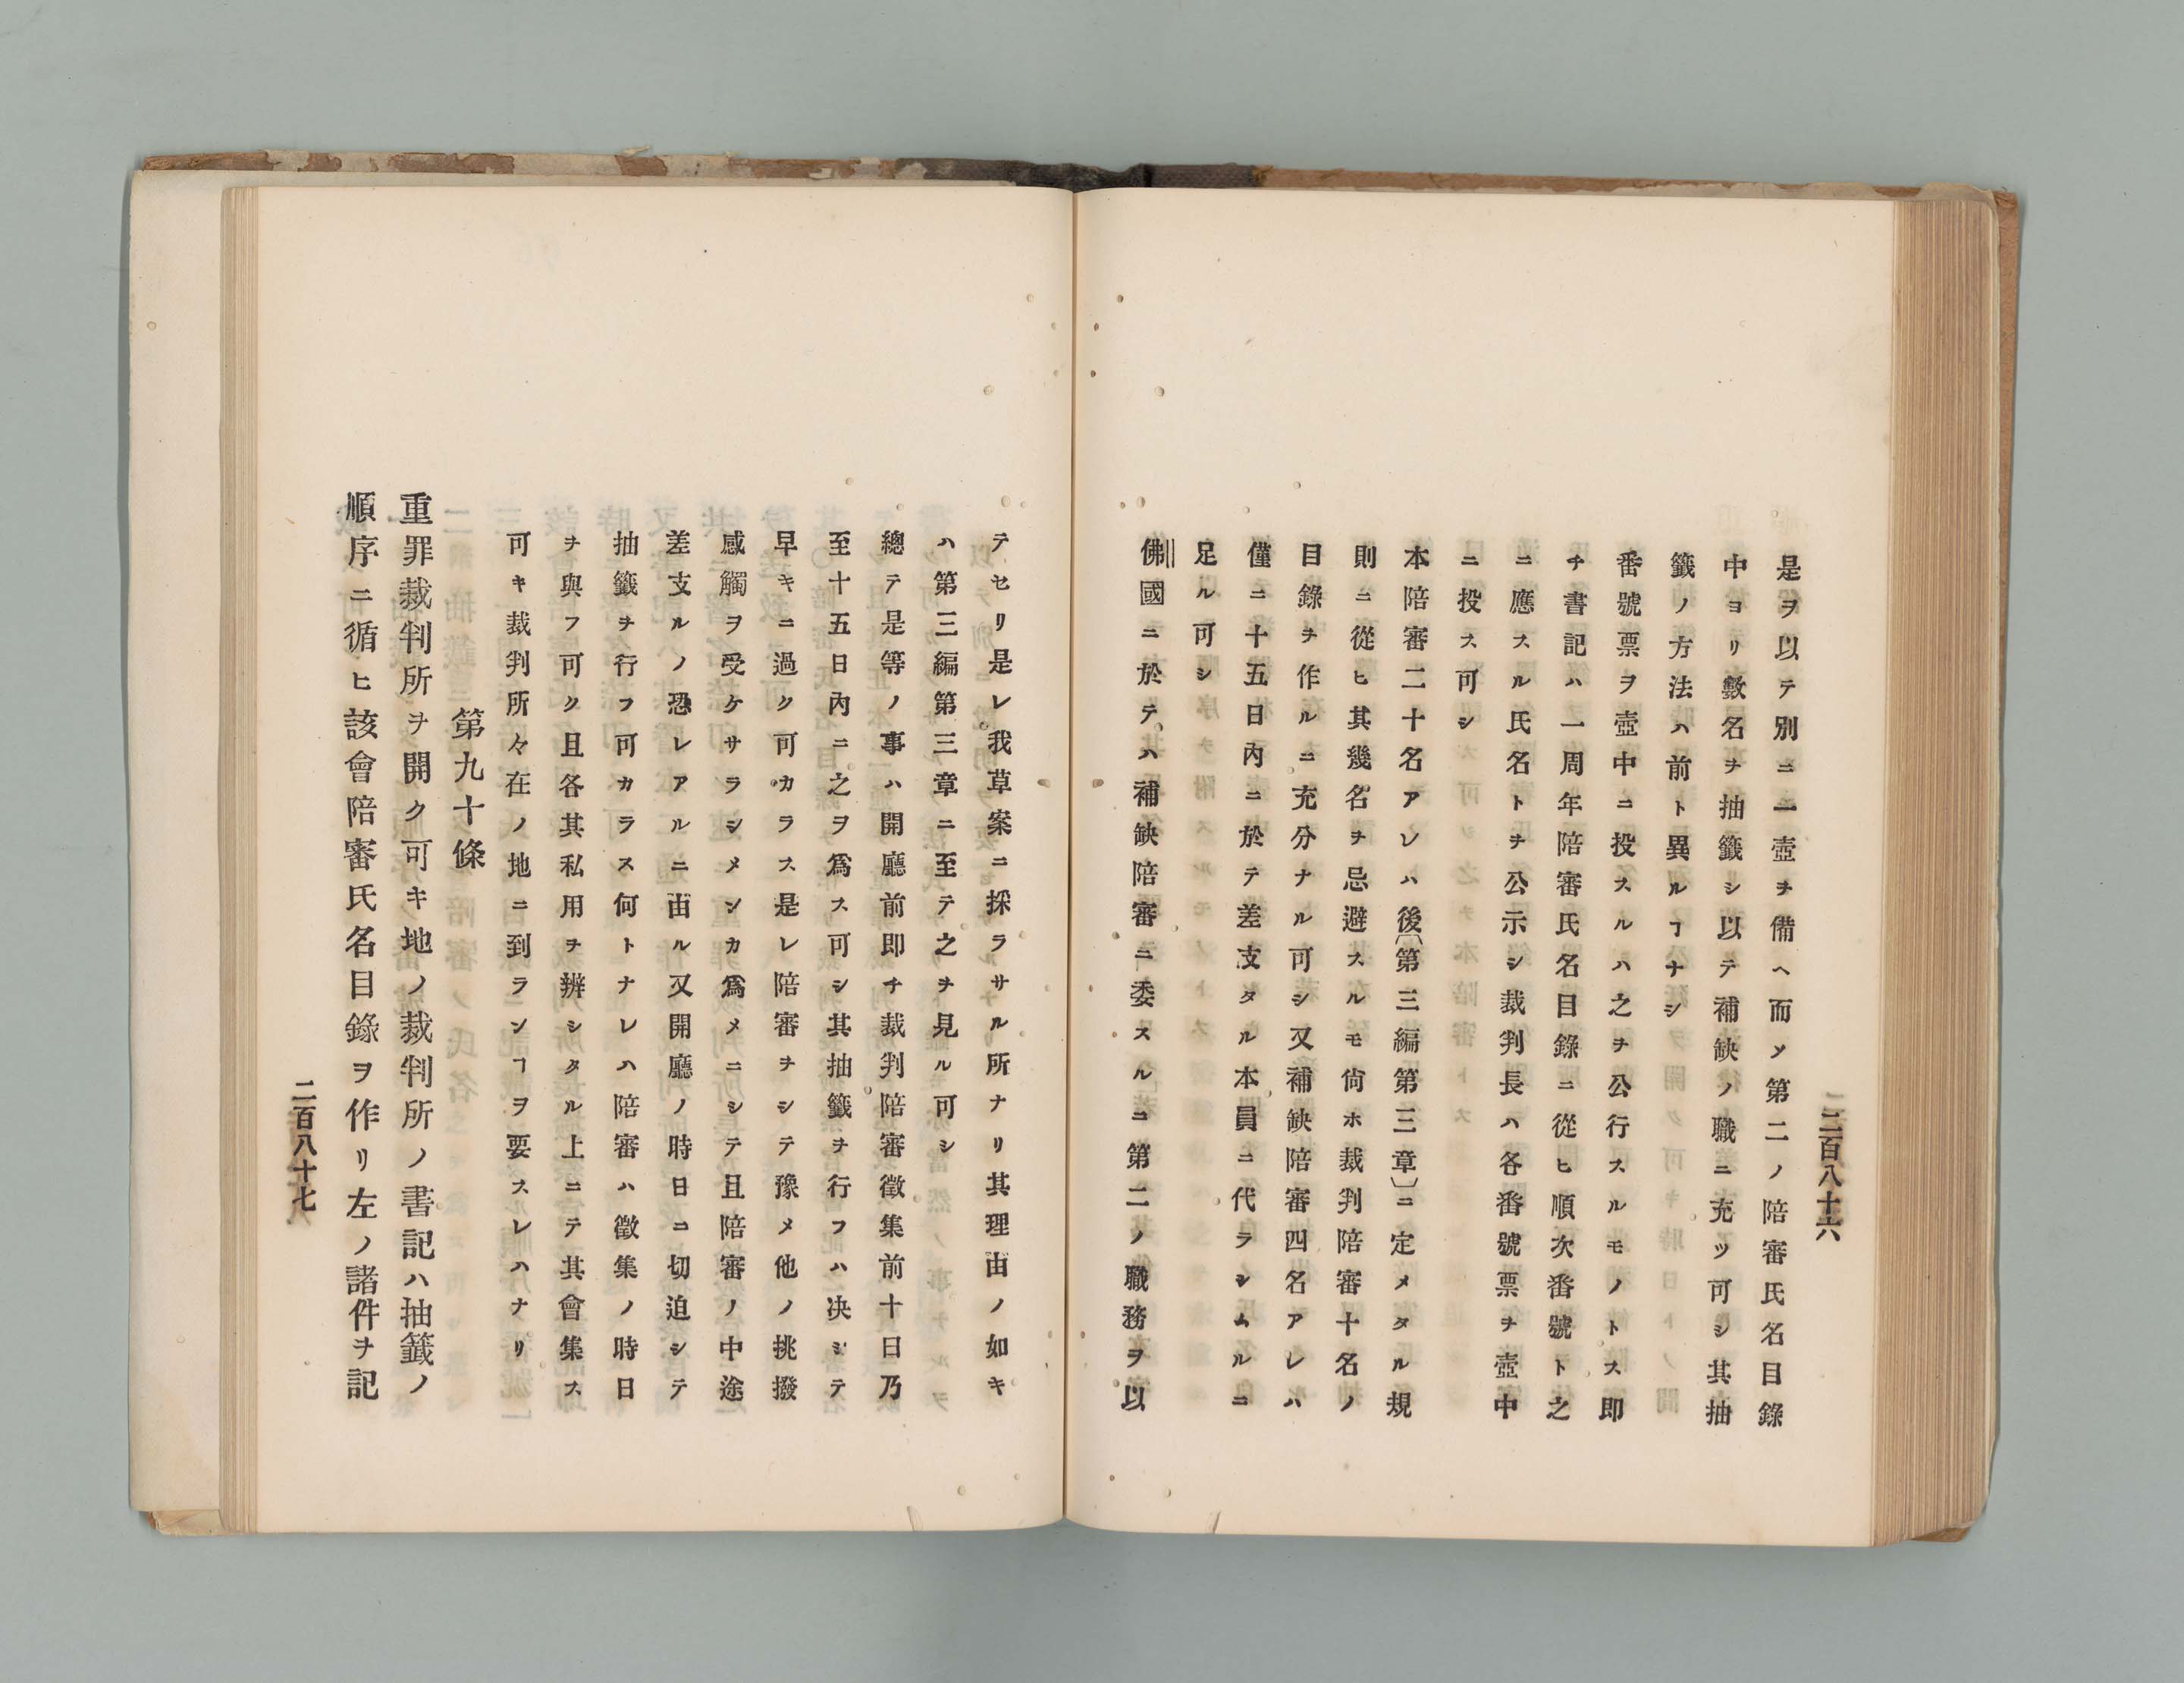 二百八十六
是ヲ以テ別ニ一壺ヲ備ヘ而メ第二ノ陪審氏名目錄
中ヨリ數名ヲ抽籤シ以テ補缺ノ職ニ充ツ可シ其抽
籤ノ方法ハ前ト異ルヿナシ
番號票ヲ壺中ニ投スルハ之ヲ公行スルモノトス即
チ書記ハ一周年陪審氏名目錄ニ從ヒ順次番號ト之
ニ應スル氏名トヲ公示シ裁判長ハ各番號票ヲ壺中
ニ投ス可シ
本陪審二十名アレハ後〔第三編第三章〕ニ定メタル規
則ニ從ヒ其幾名ヲ忌避スルモ尙ホ裁判陪審十名ノ
目錄ヲ作ルニ充分ナル可シ又補缺陪審四名アレハ
僅ニ十五日內ニ於テ差支タル本員ニ代ラシムルニ
足ル可シ
佛國ニ於テハ補缺陪審ニ委スルニ第二ノ職務ヲ以
テセリ是レ我草案ニ採ラサル所ナリ其理由ノ如キ
ハ第三編第三章ニ至テ之ヲ見ル可シ
總テ是等ノ事ハ開廳前即チ裁判陪審徵集前十日乃
至十五日內ニ之ヲ爲ス可シ其抽籤ヲ行フハ决シテ
早キニ過ク可カラス是レ陪審ヲシテ豫メ他ノ挑撥
感觸ヲ受ケサラシメンカ爲メニシテ且陪審ノ中途
差支ルノ恐レアルニ由ル又開廳ノ時日ニ切迫シテ
抽籤ヲ行フ可カラス何トナレハ陪審ハ徵集ノ時日
ヲ與フ可ク且各其私用ヲ辨シタル上ニテ其會集ス
可キ裁判所々在ノ地ニ到ランヿヲ要スレハナリ
第九十條
重罪裁判所ヲ開ク可キ地ノ裁判所ノ書記ハ抽籤ノ
順序ニ循ヒ該會陪審氏名目錄ヲ作リ左ノ諸件ヲ記
二百八十七